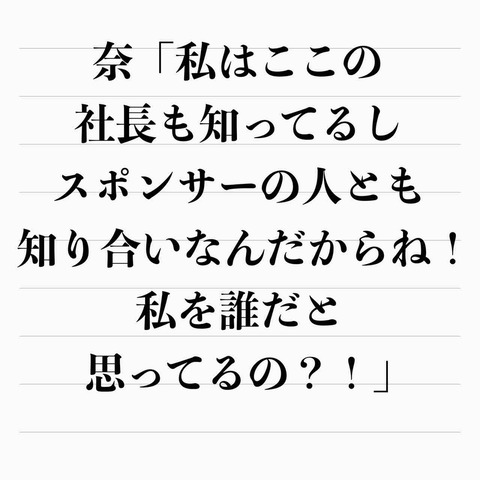 奈「私はここの
社長も知ってるし
スポンサーの人とも
知り合いなんだからね！
私を誰だと
思ってるの？！」